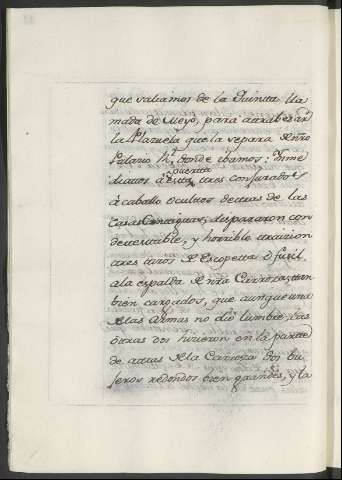 que saliamos de la Quinta lla
mada de Meyo, para atrabesar
la Plazuela que la separa de nro
Palacio Rl. donde ibamos: Inme
diatos à esta puerta, tres conjurados
à caballo ocultos detras de las
Casas Contiguas, dispararon con
detestable, y horrible traicion
tres tiros de Escopeta ô fusil
a la espalda de nra Carroza, tan
bien cargados, que aunque una
de las Armas no dió lumbre, las
otras dos hicieron en la parte
de atras de la Carroza dos bu
jeros redondos bien grandes, y la